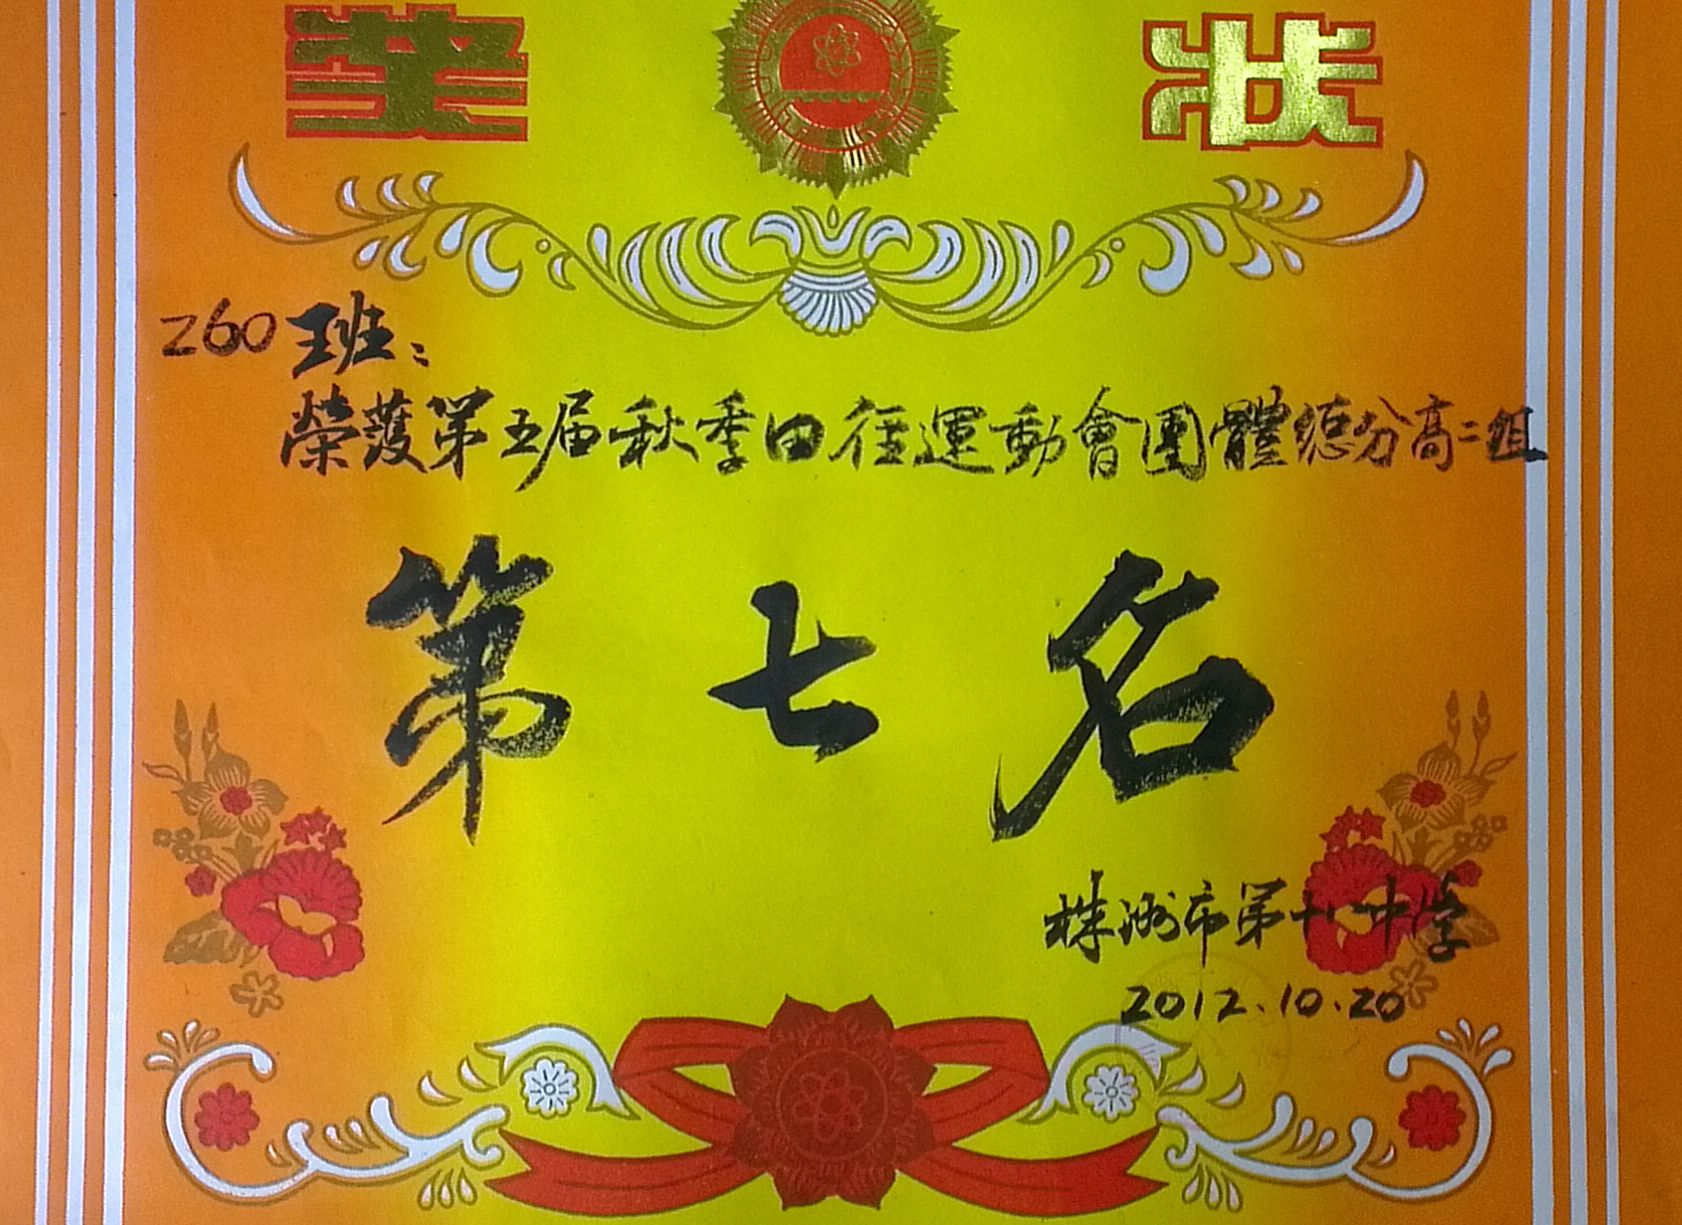 奖 状
260班：
榮獲第五届秋季田徑運動會團體總分高二組
第七名
株洲市第十八中学
2012.10.20